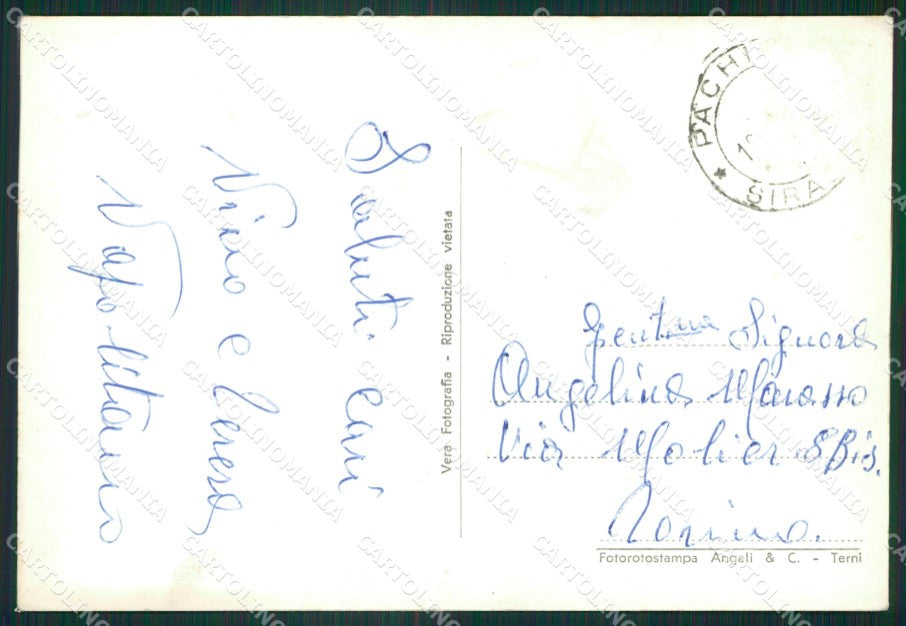 Saluti cari
Nino e Teresa
Napolitano
Vera Fotografia - Riproduzione vietata
PACHI
SIRA
Gent.ma Signora
Angelina Marasso
Via Molier 8 Bis.
Torino.
Fotorotostampa Angeli & C. - Terni
CARTOLINOMANIA